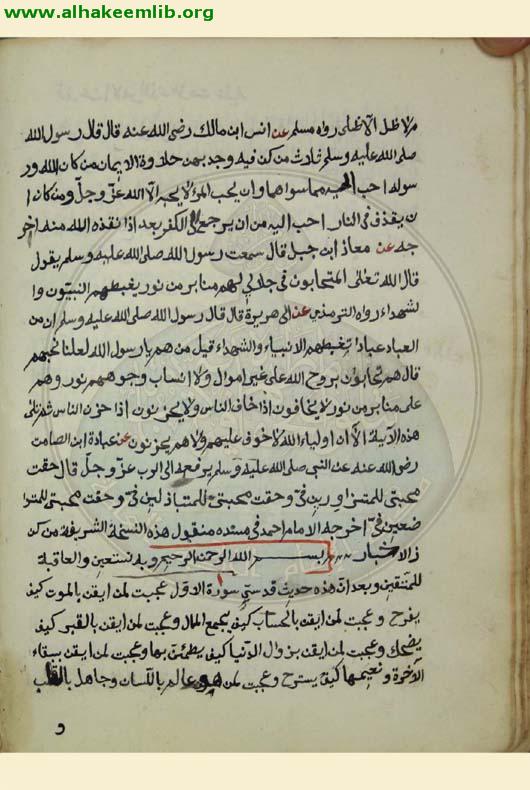 www.alhakeemlib.org
ظل الا ظلى رواه مسلم عن انس ابن مالك رضى الله عنه قال قال رسول الله
صلى الله عليه وسلم ثلاث من كن فيه وجد بهن حلاوة الايمان من كان الله ور
سوله احب اليه مما سواهما وان يحب المرؤ لا يحبه الا الله عز وجل ومن كان ا
ن يقذف فى النار احب اليه من ان يرجع الى الكفر بعد اذ انقذه الله منه اخر
جه عن معاذ ابن جبل قال سمعت رسول الله صلى الله عليه وسلم يقول
قال الله تعالى المتحابون فى جلالي لهم منابر من نور يغبطهم النبيون وا
لشهداء رواه الترمذي عن ابى هريرة قال قال رسول الله صلى الله عليه وسلم ان من
العباد عبادا يغبطهم الانبياء والشهداء قيل من هم يا رسول الله لعلنا نحبهم
قال هم تحابون بروح الله على غير اموال ولا انساب وجوههم نور وهم
على منابر من نور لا يخافون اذا خاف الناس ولا يحزنون اذا حزن الناس ثم تلى
هذه الآية الا ان اولياء الله لا خوف عليهم ولا هم يحزنون عن عبادة ابن الصامت
رضى الله عنه عن النبي صلى الله عليه وسلم يرفعه الى الرب عز وجل قال حقت
محبتى للمتزاورين فى وحقت محبتى للمتباذلين فى وحقت محبتى للمتوا
ضعين فى اخرجه الامام احمد فى مسنده منقول هذه النسخة الشريفة من كن
ز الاخبار بسم الله الرحمن الرحيم وبه نستعين والعاقبة
للمتقين وبعد ان هذه حديث قدسي سورة الاول عجبت لمن ايقن بالموت كيف
يفرح وعجبت لمن ايقن بالحساب كيف يجمع المال وعجبت لمن ايقن بالقبر كيف
يضحك وعجبت لمن ايقن بزوال الدنيا كيف يطمئن بها وعجبت لمن ايقن ببقاء
الآخرة ونعيمها كيف يستريح وعجبت لمن هو عالم باللسان وجاهل بالقلب
و